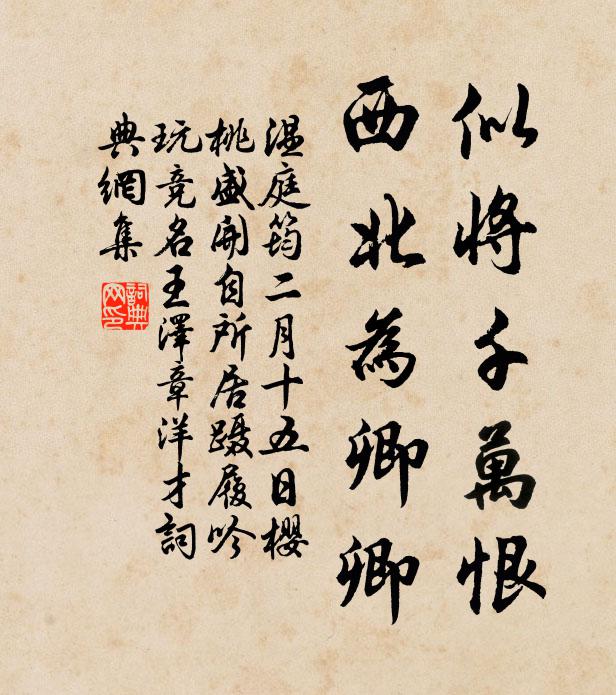 似將千萬恨
西北為卿卿
温庭筠二月十五日櫻
桃盛開自所居躡履吟
玩竞名王澤章洋才詞
典網集
詞典
网印